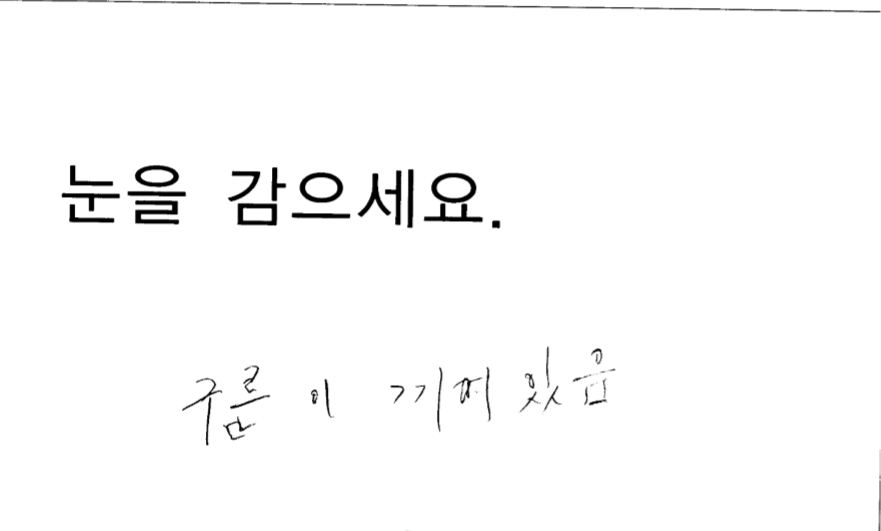 눈을 감으세요.
구름이 끼여 있음